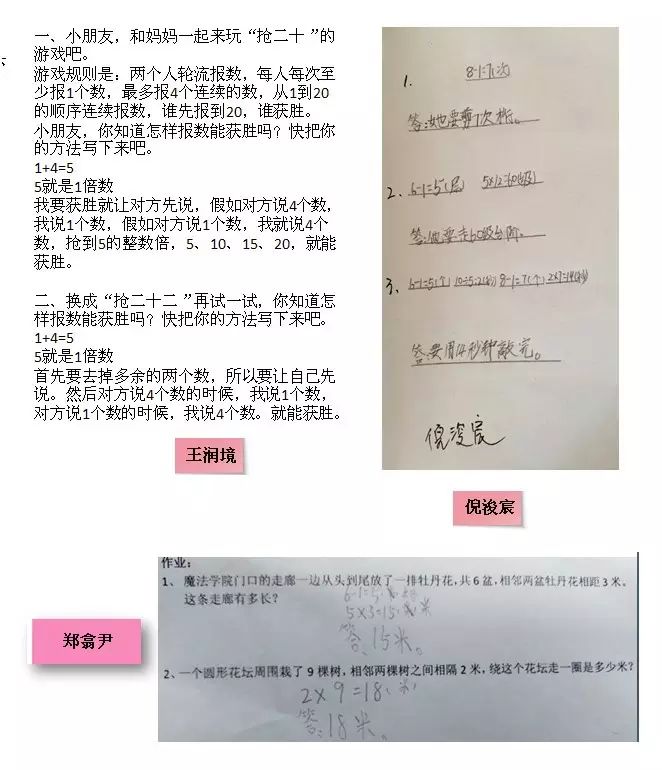 一、小朋友，和妈妈一起来玩“抢二十”的
游戏吧。
游戏规则是：两个人轮流报数，每人每次至
少报1个数，最多报4个连续的数，从1到20
的顺序连续报数，谁先报到20，谁获胜。
小朋友，你知道怎样报数能获胜吗？快把你
的方法写下来吧。
1+4=5
5就是1倍数
我要获胜就让对方先说，假如对方说4个数，
我说1个数，假如对方说1个数，我就说4个
数，抢到5的整数倍，5、10、15、20，就能
获胜。
二、换成“抢二十二”再试一试，你知道怎
样报数能获胜吗？快把你的方法写下来吧。
1+4=5
5就是1倍数
首先要去掉多余的两个数，所以要让自己先
说。然后对方说4个数的时候，我说1个数，
对方说1个数的时候，我说4个数。就能获胜。
王润境
1. 8-1=7(次)
答:她要剪7次桥。
2、6-1=5(层) 5×12=60(级)
答:他要走60级台阶。
3、6-1=5(个) 10÷5=2(秒) 8-1=7(个) 2×7=14(秒)
答:要用14秒种敲完。
倪浚宸
倪浚宸
郑翕尹
作业：
1、 魔法学院门口的走廊一边从头到尾放了一排牡丹花，共6盆，相邻两盆牡丹花相距3米。
这条走廊有多长？
6-1=5
5×3=15(米)
答:15米。
2、一个圆形花坛周围栽了9棵树，相邻两棵树之间相隔2米，绕这个花坛走一圈是多少米？
2×9=18(米)
答:18米。